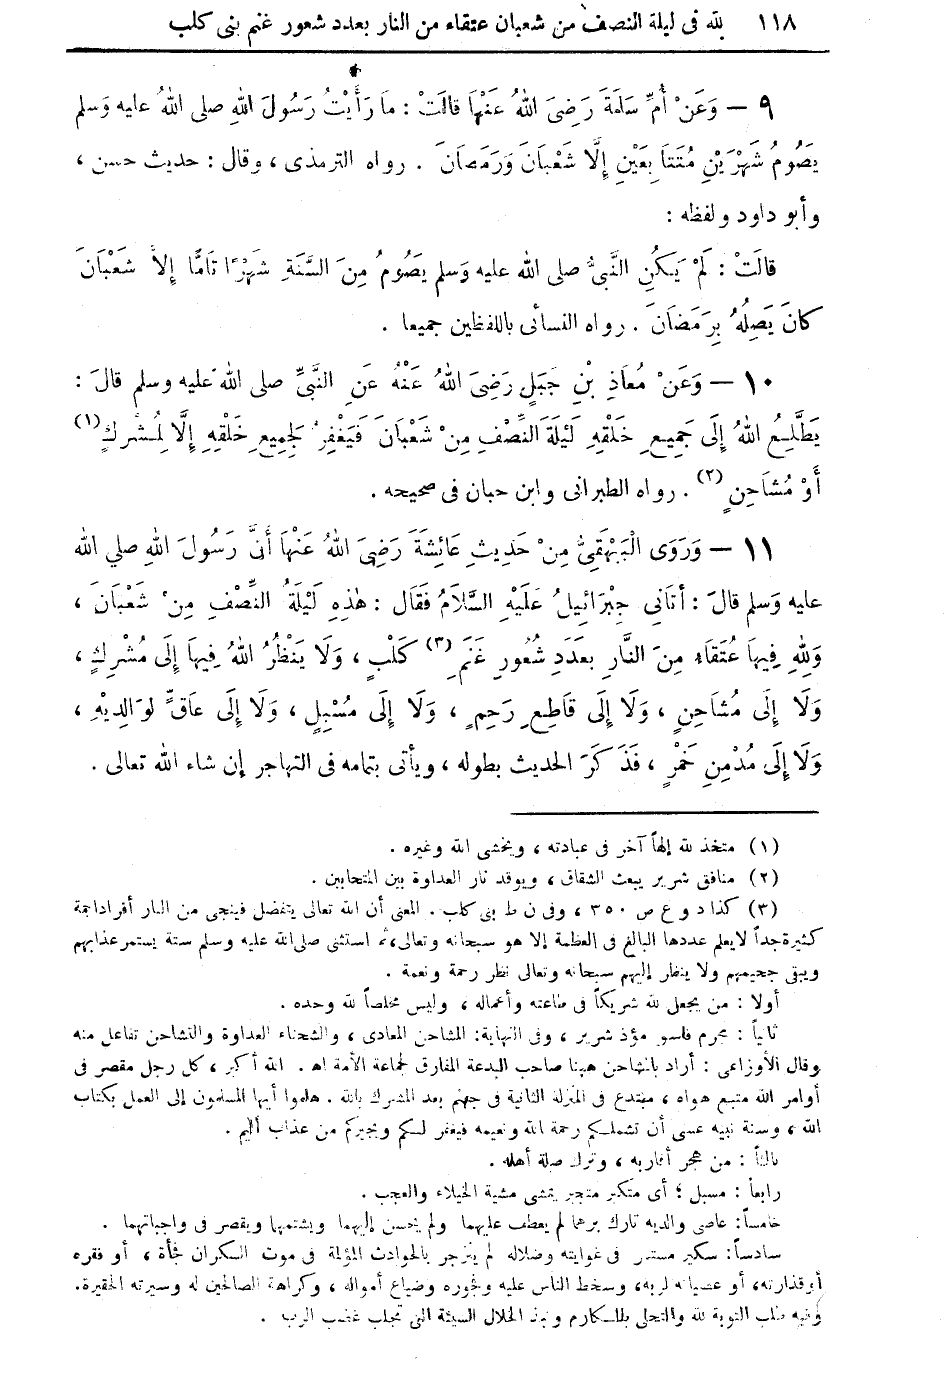 ١١٨ لله فى ليلة النصف من شعبان عتقاء من النار بعدد شعور غنم بنى كلب
٩ — وَعَنْ أُمِّ سَلَمَةَ رَضِىَ اللهُ عَنْهَا قالَتْ : مَا رَأَيْتُ رَسُولَ اللهِ صلى اللهُ عليه وَسلم
يَصُومُ شَهْرَيْنِ مُتَتَا بِعَيْنِ إِلَّا شَعْبَانَ وَرَمَضَانَ . رواه الترمذى ، وقال : حديث حسن ،
وأبو داود ولفظه :
قالَتْ : لَمْ يَكُنِ النَّبىُّ صلى الله عليه وَسلم يَصُومُ مِنَ السَّنَةِ شَهْرًا تَامًّا إِلاَّ شَعْبَانَ
كانَ يَصِلُهُ بِرَمَضَانَ . رواه النسأى باللفظين جميعا .
١٠ — وَعَنْ مُعَاذِ بْنِ جَبَلٍ رَضِىَ اللهُ عَنْهُ عَنِ النَّبىِّ صلى الله عليه وسلم قالَ :
يَطَّلِعُ اللهُ إِلَى جَمِيعِ خَلْقِهِ لَيْلَةَ النِّصْفِ مِنْ شَعْبَانَ فَيَغْفِرُ لِجَمِيعِ خَلْقِهِ إِلَّا لِمُشْرِكٍ (١)
أَوْ مُشَاحِنٍ (٢) . رواه الطبرانى وابن حبان فى صحيحه .
١١ — وَرَوَى الْبَيْهَقِىُّ مِنْ حَدِيثِ عَائِشَةَ رَضِىَ اللهُ عَنْهَا أَنَّ رَسُولَ اللهِ صلي الله
عليه وَسلم قالَ : أَتَانِى جِبْرَائِيلُ عَلَيْهِ السَّلَامُ فَقَال : هٰذِهِ لَيْلَةُ النِّصْفِ مِنْ شَعْبَانَ ،
وَلِلهِ فِيهَا عُتَقَاءِ مِنَ النَّارِ بِعَدَدِ شُعُورِ غَنَمِ (٣) كَلْبٍ ، وَلَا يَنْظُرُ اللهُ فِيهَا إِلَى مُشْرِكٍ ،
وَلَا إِلَى مُشَاحِنٍ ، وَلَا إِلَى قَاطِعِ رَحِمٍ ، وَلَا إِلَى مُسْبِلٍ ، وَلَا إِلَى عَاقٍّ لِوَالِدَيْهِ ،
وَلَا إِلَى مُدْمِنِ خَمْرٍ ، فَذَ كَرَ الحديث بطوله ، ويأتى بتمامه فى التهاجر إن شاء الله تعالى .
(١) متخذ لله إلهاً آخر فى عبادته ، ويخشى الله وغيره .
(٢) منافق شرير يبعث الشقاق ، ويوقد نار العداوة بين المتحابين .
(٣) كذا د و ع ص ٣٥٠ ، وفى ن ط بنى كلب . المعنى أن الله تعالى يتفضل فينجى من النار أفراداً جمة
كثيرة جداً لايعلم عددها البالغ فى العظمة إلا هو سبحانه وتعالى، ثم استثنى صلى الله عليه وسلم ستة يستمر عذابهم
ويبقى جحيمهم ولا ينظر إليهم سبحانه وتعالى نظر رحمة ونعمة .
أولا : من يجعل لله شريكاً فى طاعته وأعماله ، وليس مخلصاً لله وحده .
ثانياً : مجرم فاسق مؤذ شرير ، وفى النهاية: المشاحن المعادى ، والشحناء العداوة والتشاحن تفاعل منه
وقال الأوزاعى : أراد بالمشاحن هينا صاحب البدعة المفارق لجماعة الأمة اهـ . الله أكبر ، كل رجل مقصر فى
أوامر الله متبع هواه ، مبتدع فى المنزلة الثانية فى جهنم بعد المشرك بالله . هلموا أيها المسلمون إلى العمل بكتاب
الله ، وسنة نبيه عسى أن تشملكم رحمة الله ونعيمه فيغفر لكم ويجيركم من عذاب أليم .
ثالثاً : من هجر أقاربه ، وترك صلة أهله .
رابعاً : مسبل ؛ أى متكبر متجبر يتمشى مشية الخيلاء والعجب .
خامساً: عاصى والديه تارك برهما لم يعطف عليهما ولم يحسن إليهما ويشتمها ويقصر فى واجباتهما .
سادساً: سكير مستمر فى غوايته وضلاله لم ينزجر بالحوادث المؤلمة فى موت السكران فجأة ، أو فقره
أو قذارته، أو عصيانه لربه، وسخط الناس عليه وفجوره وضياع أمواله ، وكراهة الصالحين له وسيرته الحقيرة.
وفيه طلب التوبة لله والتحلى بالمكارم ونبذ الخلال السيئة التى تجلب غضب الرب .